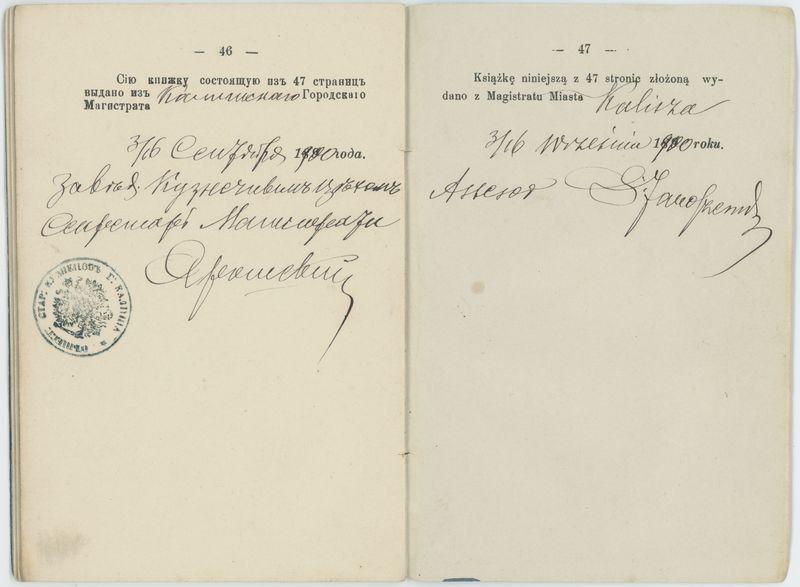 — 46 —
Сію книжку состоящую изъ 47 страницъ
выдано изъ Калишскаго Городскаго
Магистрата
3/16 Сентября 1900 года.
Завѣд. Кузнечнымъ Цехомъ
Секретарь Магистрата
— 47 —
Książkę niniejszą z 47 stronic złożoną wy-
dano z Magistratu Miasta Kalisza
3/16 Września 1900 roku.
Assesor